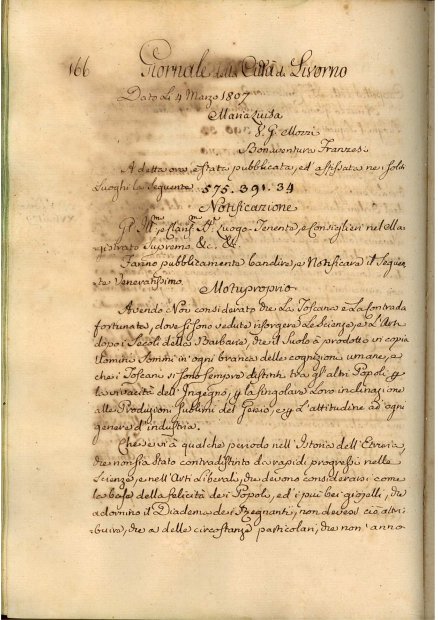 166 Giornale della Città di Livorno
Dato Li 4 Marzo 1807
Maria Luisa
V. G. Mozzi
Bonaventura Franzesi
A detta ora è stata pubblicata, ed affissata ne soliti
Luoghi la Seguente 575. 391. 34
Notificazione
Gl' Ill.mi e Clariss.mi Luogo-Tenente, e Consiglieri nel Ma
gistrato Supremo &c. &c.
Fanno pubblicamente bandire, e Notificare il Seguen
te Veneratissimo
Motuproprio
Avendo Noi considerato che La Toscana è La Contrada
fortunata, dove si sono vedute risorgere Le Scienze, e L'Arti
dopo i Secoli della Barbarie, che il Suolo à prodotto in copia
Uomini Sommi in ogni branca delle cognizioni umane, e
che i Toscani si sono sempre distinti tra gli altri Popoli p
la vivacità dell' Ingegno, p la singolare Loro inclinazione
alle Produzioni Sublimi del Genio, e p L'attitudine ad ogni
genere d'industria.
Che se vi à qualche periodo nell' Istoria dell' Etruria,
che non sia stato contradistinto da rapidi progressi nelle
Scienze, e nell' Arti Liberali, che devono considerarsi come
la base della felicità dei Popoli, ed i più bei giojelli, che
adornino il Diadema dei Regnanti, non devesi ciò attri
buire, che a delle circostanze particolari, che non anno